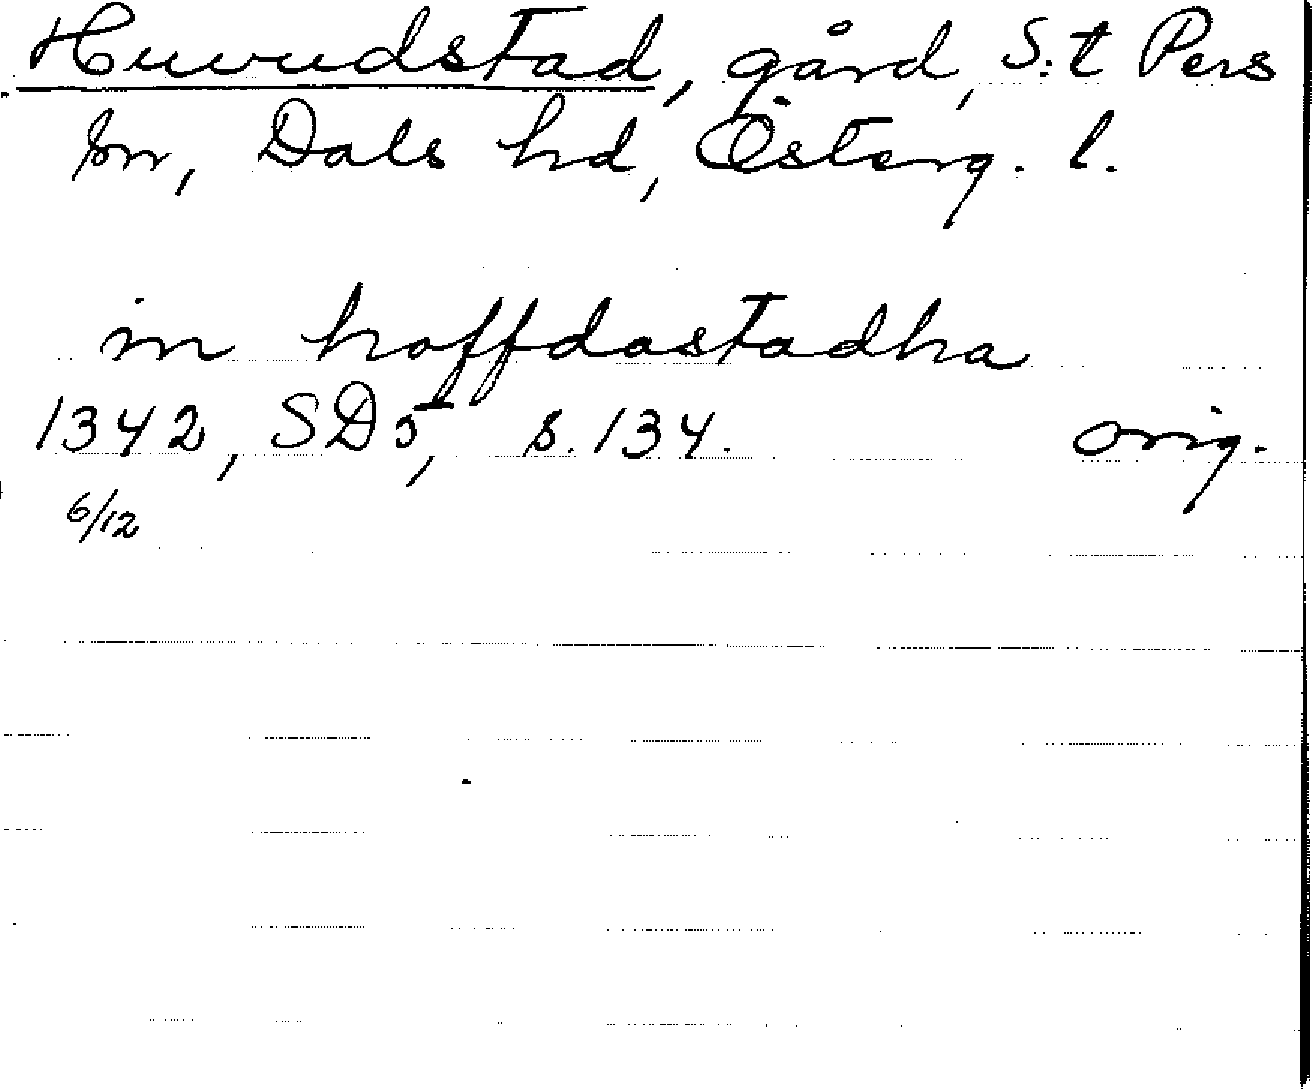 Huvudstad, gård, S:t Pers
sn, Dals hd, Österg. l.
in hoffdastadha
1342, SD 5, s. 134. orig.
6/12